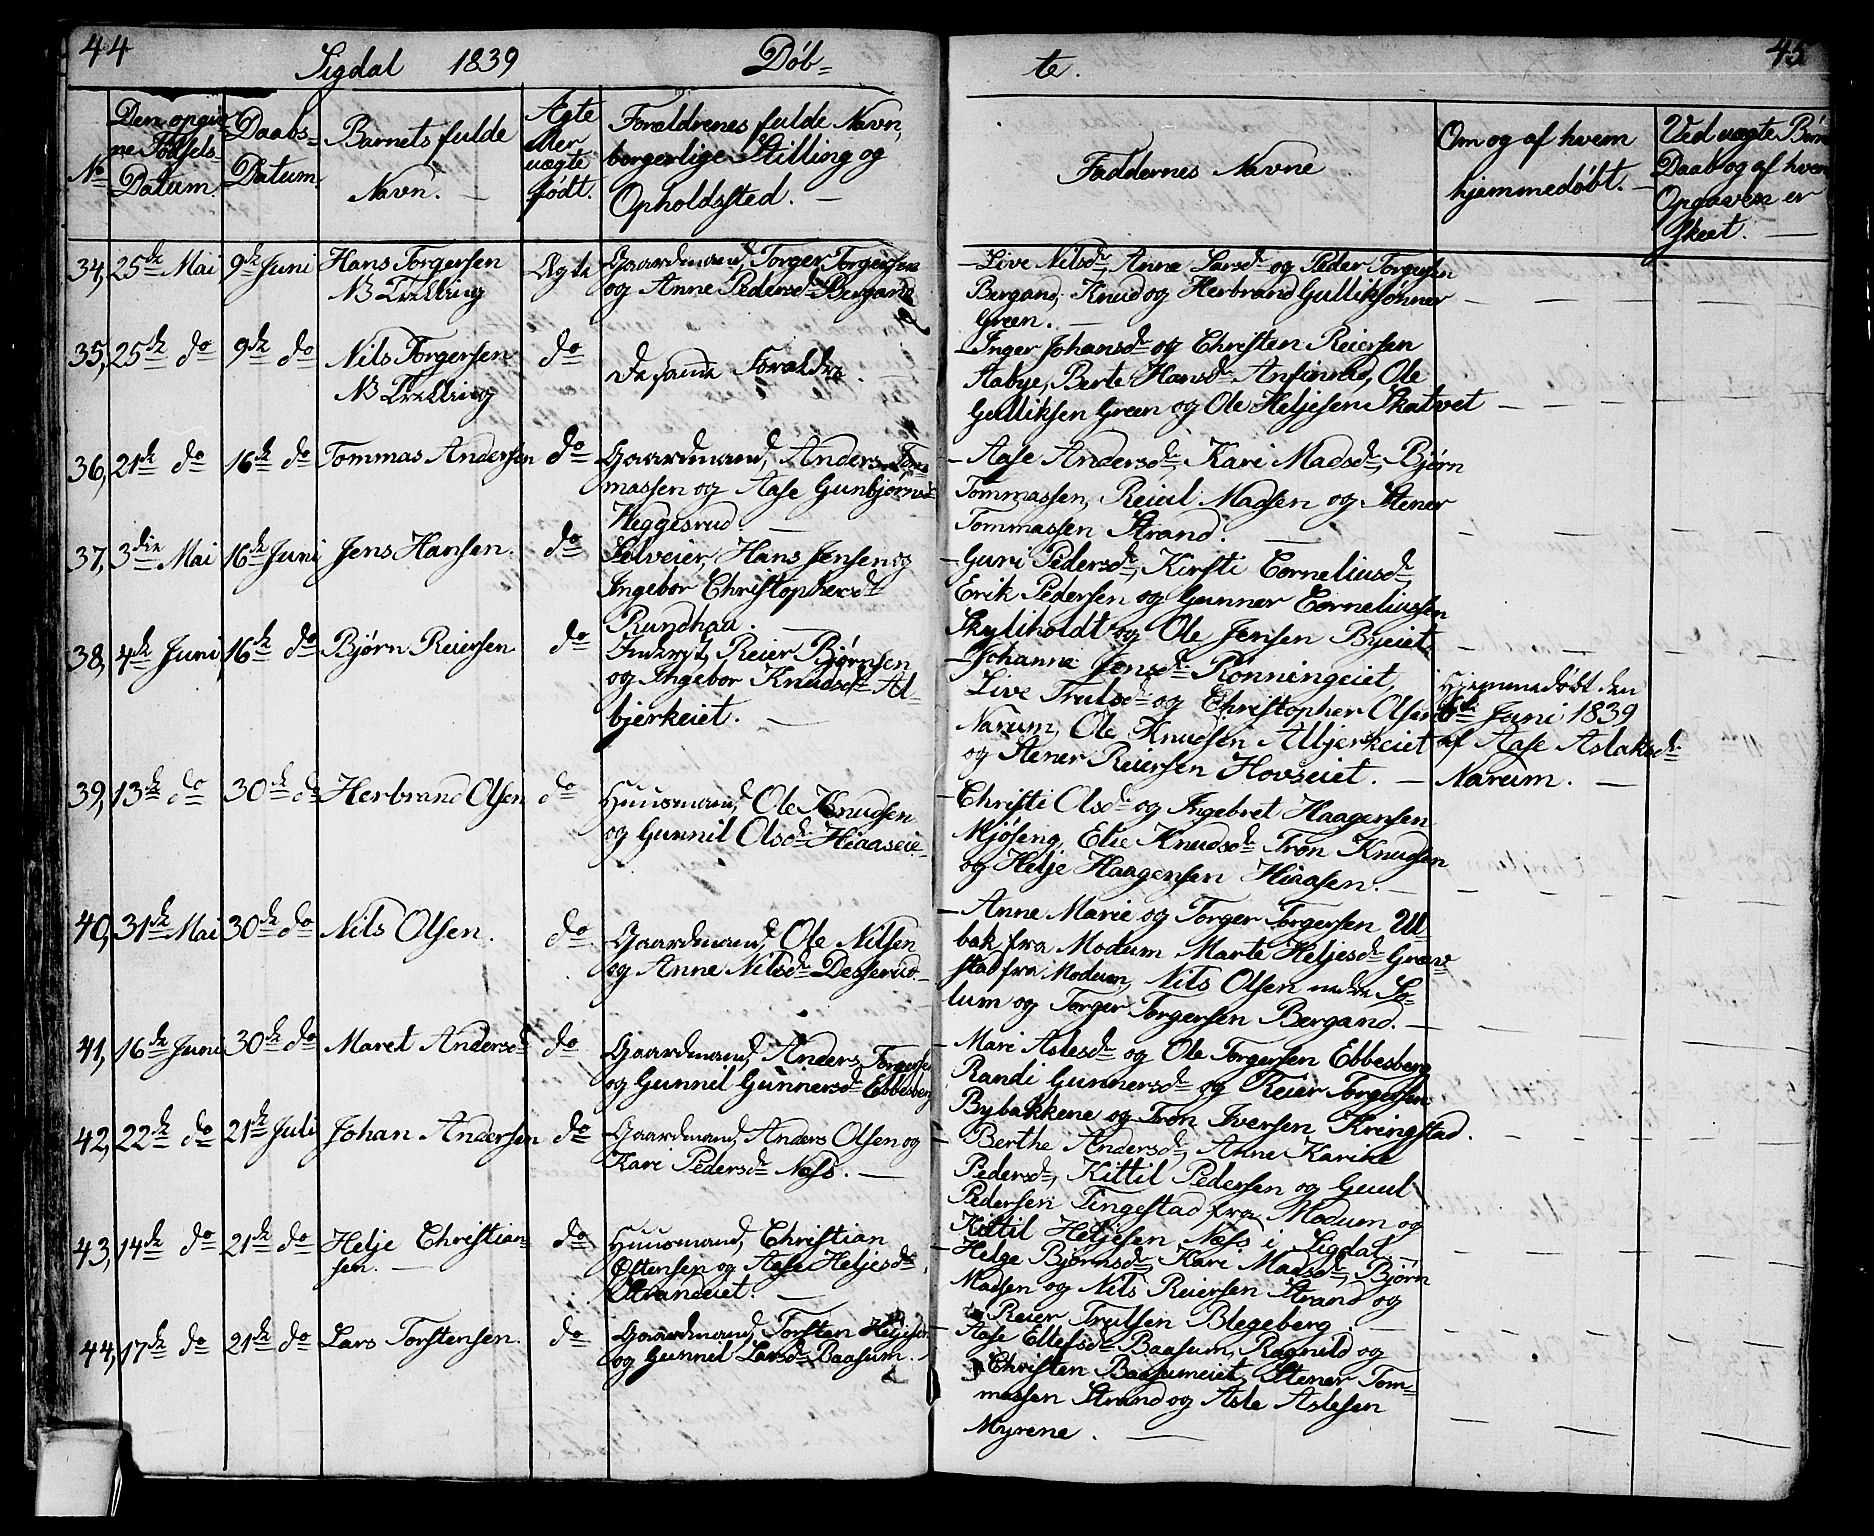 44
Sigdal 1839 Döb=
te.
45
No
Den opgiv
ne Födsels
Datum.
Daabs-
Datum
Barnets fulde
Navn.
Ægte
eller
uægte
född.
Forældrenes fulde Navn,
borgerlige Stilling og
Opholdssted.
Faddernes Navne
Om og af hvem
hjemmedöbt.
Ved uægte Börns
Daab og af hvem
Opgaven er
skeet.
34, 25de Mai 9de Juni Hans Torgersen Ægte Gaardmand, Torger Torgersen
NB Tvilling og Anne Pedersdr Bergand
Live Nilsdr, Anne Larsdr og Peder Torgersen
Bergand, Knud og Herbrand Gulliksönner
Green.
35, 25de do 9de do Nils Torgersen do De samme Forældre.
NB Tvilling
Inger Johansdr og Christen Reiersen
Aabye, Berte Hansdr Anfinrud, Ole
Gulliksen Green og Ole Heljesen Skatvet
36, 21de do 16de do Tommas Andersen do Gaardmand, Anders Tom=
massen og Aase Gunbjörnsdr
Heggesrud
Aase Andersdr, Kari Madsdr, Björn
Tommassen, Reiul Madsen og Stener
Tommassen Strand.
37, 3die Mai 16de Juni Jens Hansen. do Selveier, Hans Jensen og
Ingebor Christophersdr
Rundhau.
Guri Pedersdr, Kirsti Corneliusdr,
Erik Pedersen og Gunner Corneliussen
Skyliholdt og Ole Jensen Byeiet
38, 4de Juni 16de do Björn Reiersen do Inderst, Reier Björnsen
og Ingebor Knudsdr Al-
bjerkeiet.
Johanne Jensdr Rönningeiet,
Live Trulsdr og Christopher Olsen
Narum, Ole Knudsen Albjerkeiet
og Stener Reiersen Hovseiet.
Hjemmedöbt den
6te Juni 1839
af Aase Aslaksdr
Narum.
39, 13de do 30de do Herbrand Olsen do Huusmand, Ole Knudsen
og Gunnil Olsdr Hiaaseie
Christi Olsdr og Ingebret Haagensen
Mjöseng, Elie Knudsdr Tron Knudsen
og Helje Haagensen Hiaasen.
40, 31de Mai 30de do Nils Olsen. do Gaardmand, Ole Nilsen
og Anne Nilsdr Desserud
Anne Marie og Torger Torgersen Ul-
bak fra Modum Marte Heljesdr Grav
stad fra Modum, Nils Olsen nedre So-
lum og Torger Torgersen Bergand.
41, 16de Juni 30de do Maret Andersdr do Gaardmand, Anders Torgersen
og Gunnil Gunnersdr Ebbesberg
Mari Aslesdr og Ole Torgersen Ebbesberg
Randi Gunnersdr og Reier Torgersen
Bybakkene og Tron Iversen Kringstad.
42, 22de do 21de Juli Johan Andersen do Gaardmand, Anders Olsen og
Kari Pedersdr Næss.
Berthe Andersdr, Anne Karine
Pedersdr, Kittil Pedersen og Guul
Pedersen Tingestad fra Modum og
Kittil Heljesen Næss i Sigdal.
43, 14de do 21de do Helje Christian- do Huusmand, Christian
sen. Östensen og Aase Heljesdr
Strandeiet.
Helge Björnsdr, Kari Madsdr, Björn
Madsen og Nils Reiersen Strand og
Reier Trulsen Blegeberg
44, 17de do 21de do Lars Torstensen. do Gaardmand, Torsten Heljesen
og Gunnil Larsdr Baasum.
Aase Ellefsdr Baasum, Ragnild og
Christen Baasumeiet, Stener Tom-
massen Strand og Asle Aslesen
Myrene.